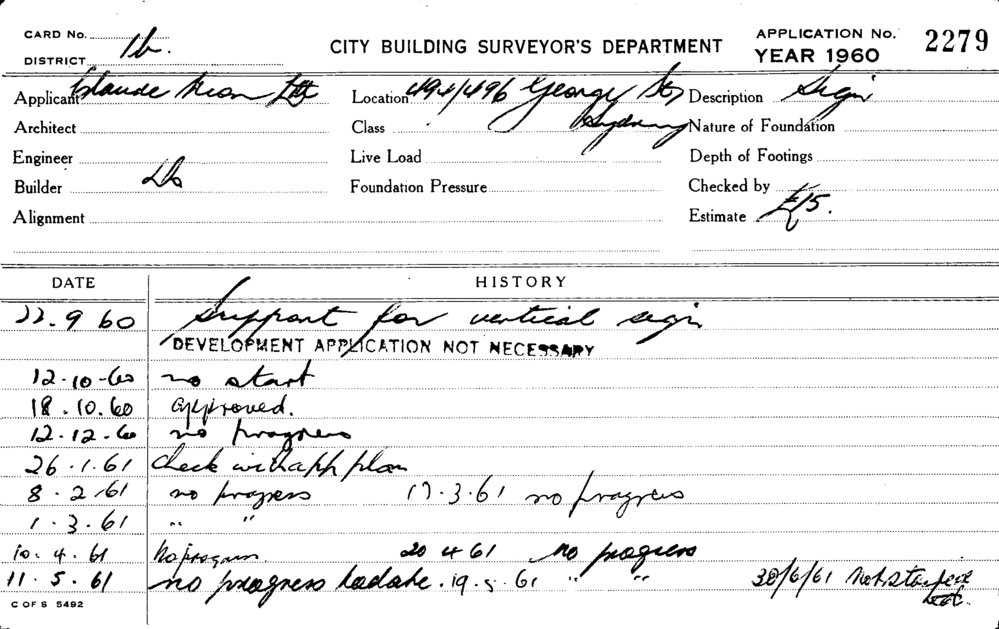 CARD No. 1b. CITY BUILDING SURVEYOR'S DEPARTMENT APPLICATION No. 2279
DISTRICT YEAR 1960
Applicant Claude Neon Ltd Location 494/496 George St, Sydney Description Sign
Architect Class Nature of Foundation
Engineer Live Load Depth of Footings
Builder Do Foundation Pressure Checked by
Alignment Estimate £15.
DATE HISTORY
22.9 60 Support for vertical sign
DEVELOPMENT APPLICATION NOT NECESSARY
12-10-60 no start
18.10.60 approved.
12.12.60 no progress
26.1.61 Check with app plan
8.2.61 no progress 17.3.61 no progress
1.3.61 " "
10.4.61 No progress 20 4 61 No progress
11.5.61 no progress to date. 19.5.61 " " 30/6/61 Not started
C OF S 5492